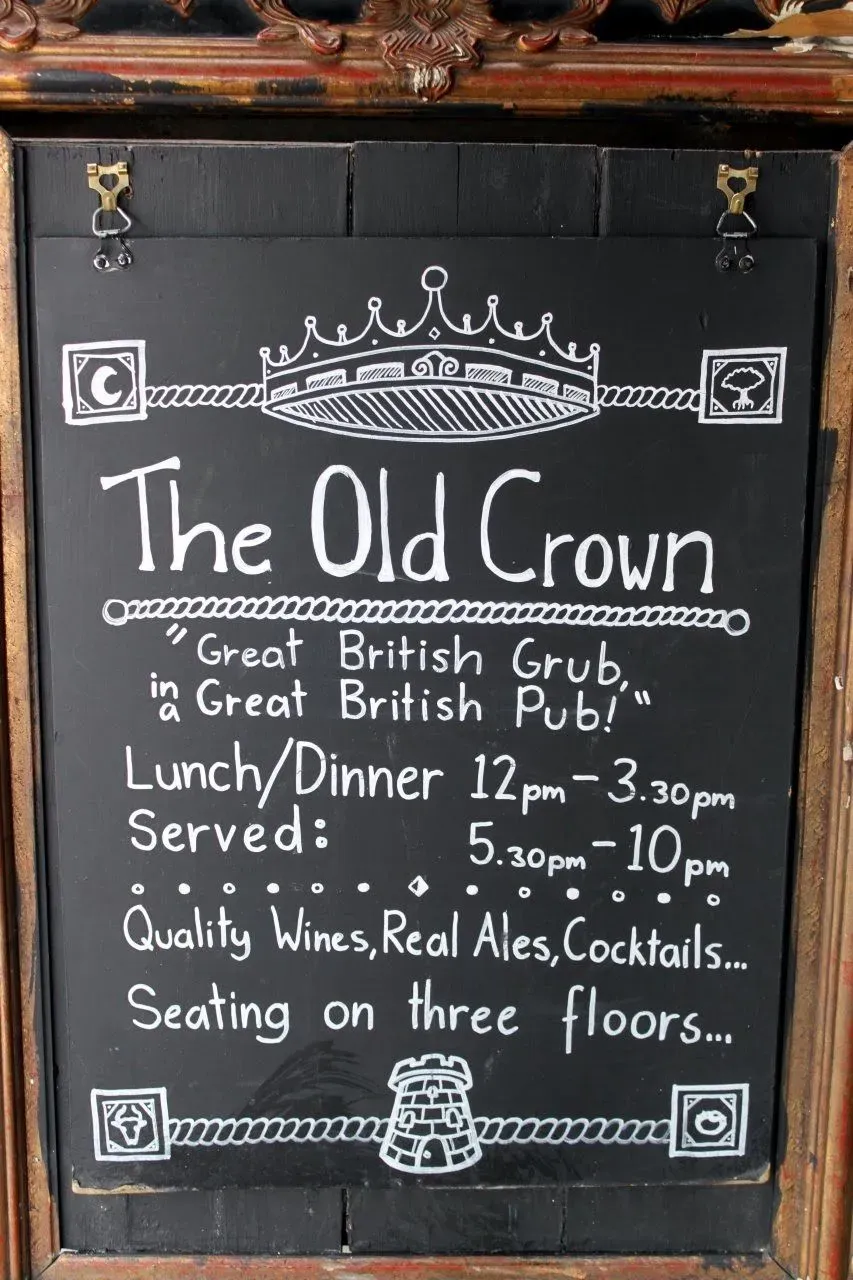 The Old Crown
"Great British Grub,
in a Great British Pub!"
Lunch/Dinner 12pm - 3.30pm
Served: 5.30pm - 10pm
Quality Wines, Real Ales, Cocktails...
Seating on three floors...